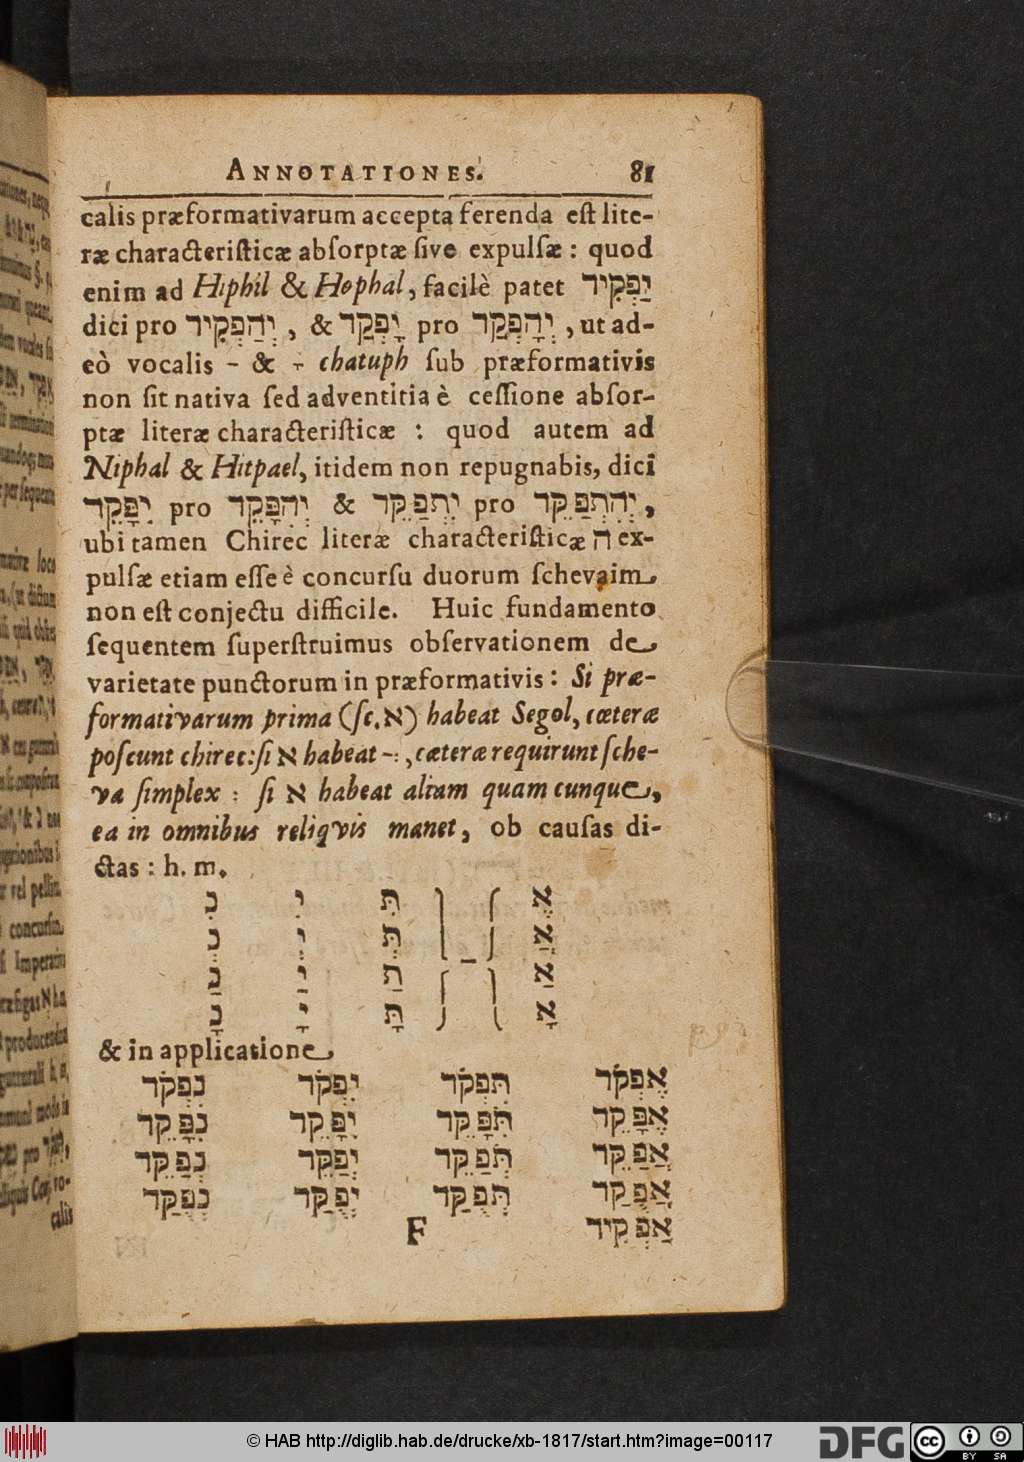 ANNOTATIONES. 81
calis præformativarum accepta ferenda eſt lite-
ræ characteriſticæ abſorptæ ſive expulſæ : quod
enim ad Hiphil & Hophal, facilè patet יַפְקִיד
dici pro יְהַפְקִיד, & יָפְקַד pro יְהָפְקַד, ut ad-
eò vocalis - & chatuph ſub præformativis
non ſit nativa ſed adventitia è ceſſione abſor-
ptæ literæ characteriſticæ : quod autem ad
Niphal & Hitpael, itidem non repugnabis, dici
יִפָּקֵד pro יְהִפָּקֵד & יִתְפַּקֵּד pro יְהִתְפַּקֵּד,
ubi tamen Chirec literæ characteriſticæ ה ex-
pulſæ etiam eſſe è concurſu duorum ſchevaim
non eſt conjectu difficile. Huic fundamento
ſequentem ſuperſtruimus obſervationem de
varietate punctorum in præformativis : Si præ-
formativarum prima (ſc. א) habeat Segol, cæteræ
poſcunt chirec : ſi א habeat -: , cæteræ requirunt ſche-
va ſimplex : ſi א habeat aliam quamcunque,
ea in omnibus reliqvis manet, ob cauſas di-
ctas : h. m.
אֶ תִּ יִ נִ
אֲ תְּ יְ נְ
אַ תַּ יַ נַ
אָ תָּ יָ נָ
& in applicatione
אֶפְקֹד תִּפְקֹד יִפְקֹד נִפְקֹד
אֶפָּקֵד תִּפָּקֵד יִפָּקֵד נִפָּקֵד
אֲפַקֵּד תְּפַקֵּד יְפַקֵּד נְפַקֵּד
אֲפֻקַּד תְּפֻקַּד יְפֻקַּד נְפֻקַּד
F אַפְקִיד
© HAB http://diglib.hab.de/drucke/xb-1817/start.htm?image=00117
DFG
cc
BY SA